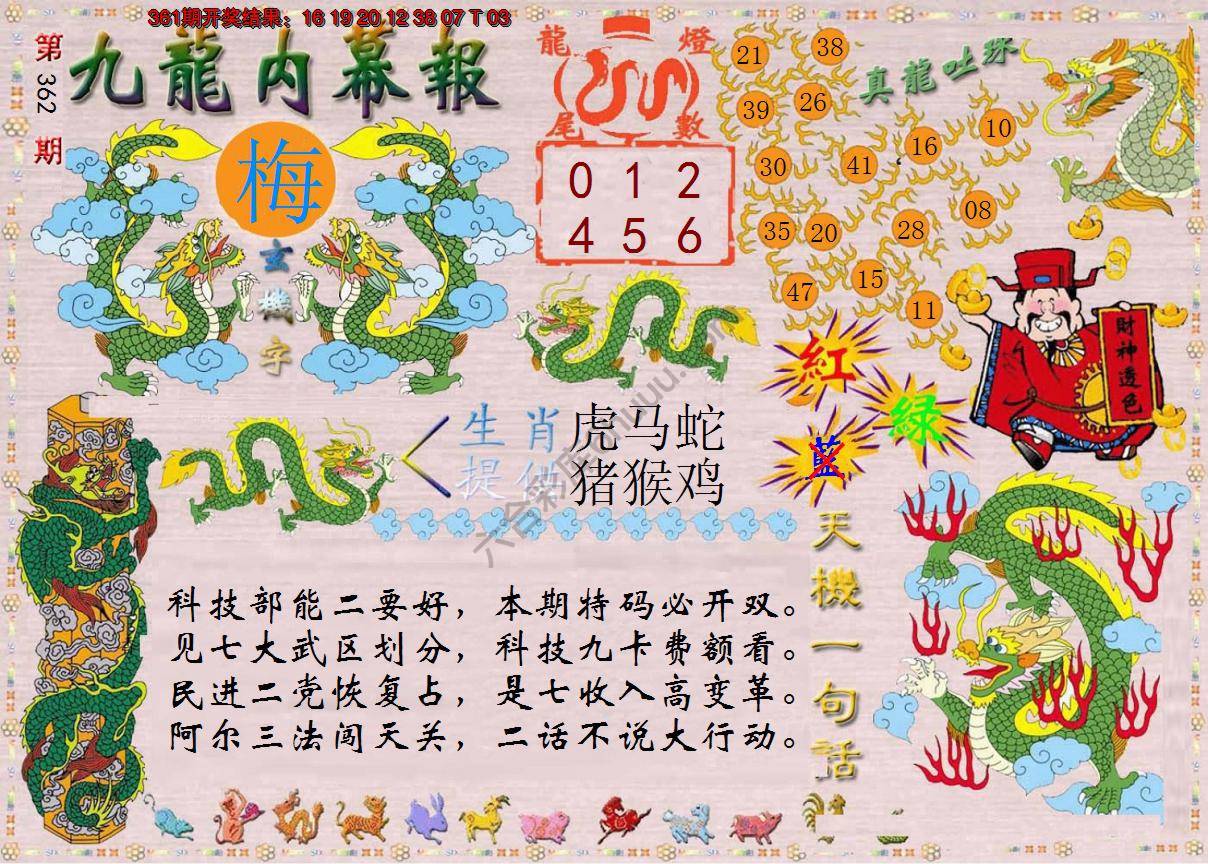 361期开奖结果：16 19 20 12 38 07 T 03
第362期
九龍内幕報
梅
玄機字
龍燈尾數
0 1 2
4 5 6
真龍吐珠
21 38
39 26
30 41 16 10
35 20 28 08
47 15 11
財神透色
紅
綠
藍
生肖 虎马蛇
提供 猪猴鸡
天機一句話
科技部能二要好，本期特码必开双。
见七大武区划分，科技九卡费额看。
民进二党恢复占，是七收入高变革。
阿尔三法闯天关，二话不说大行动。